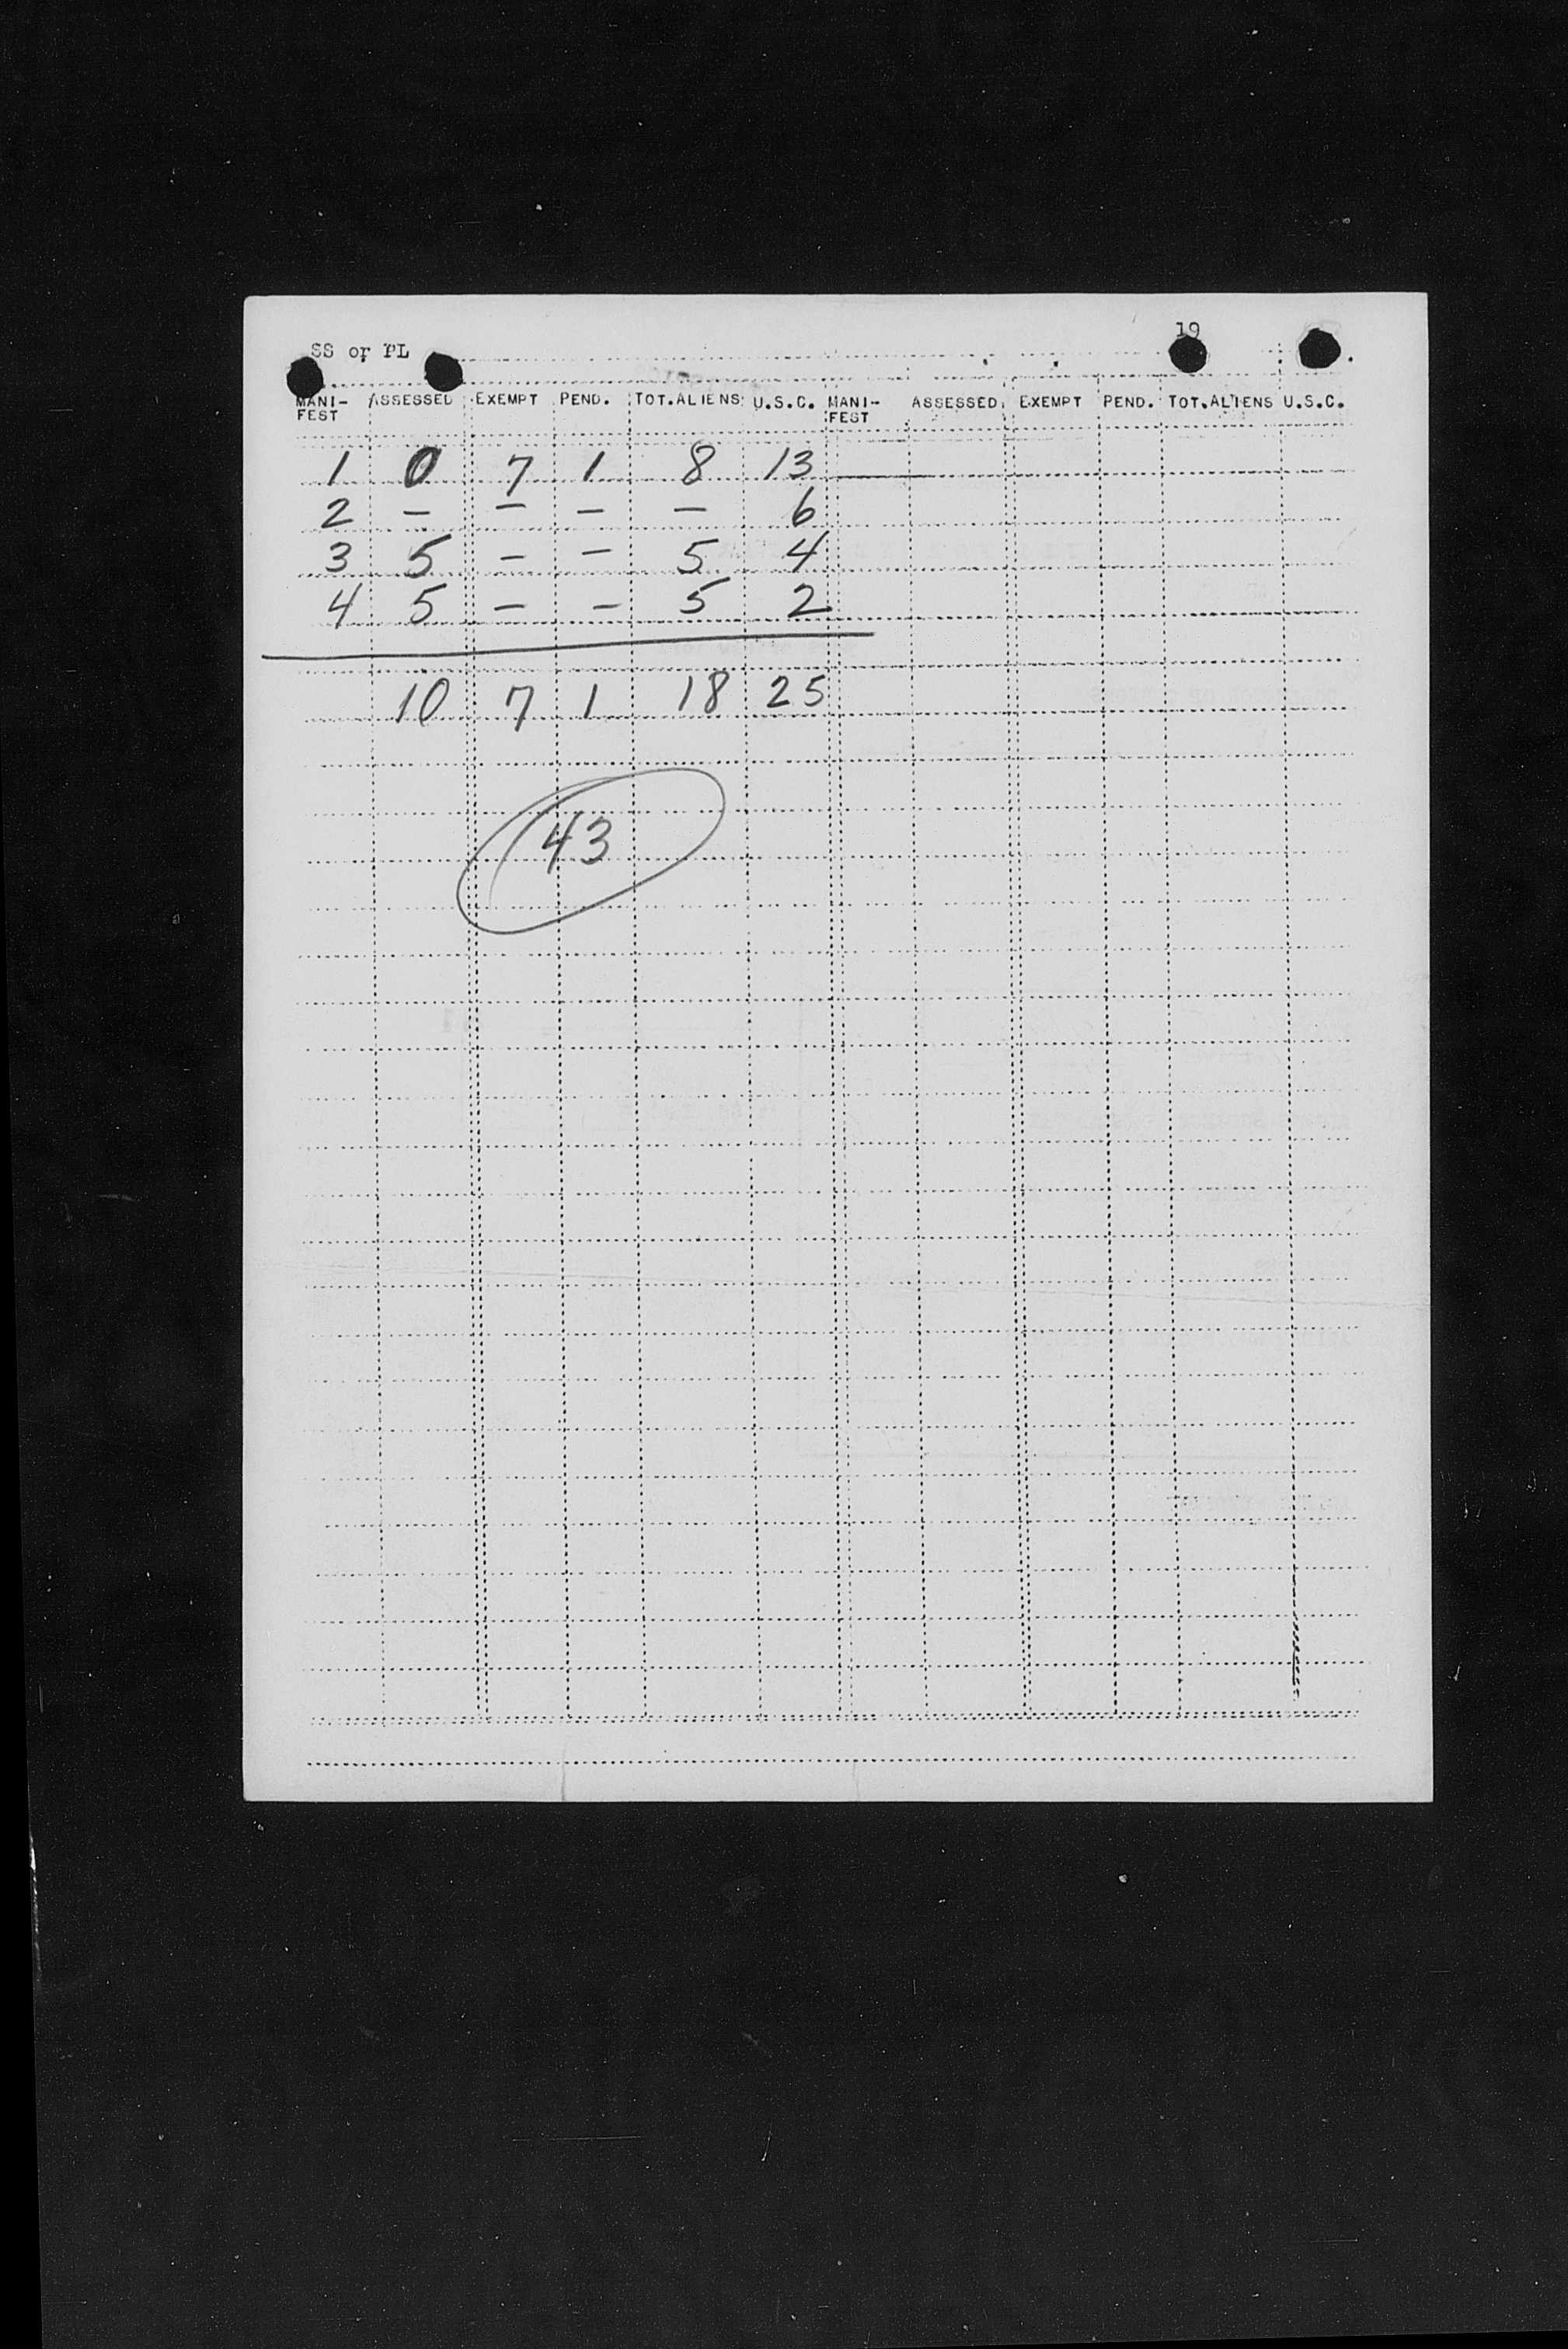 19
SS or PL
MANI-FEST ASSESSED EXEMPT PEND. TOT.ALIENS U.S.C. MANI-FEST ASSESSED EXEMPT PEND. TOT.ALIENS U.S.C.
1 0 7 1 8 13
2 — — — — 6
3 5 — — 5 4
4 5 — — 5 2
10 7 1 18 25
43